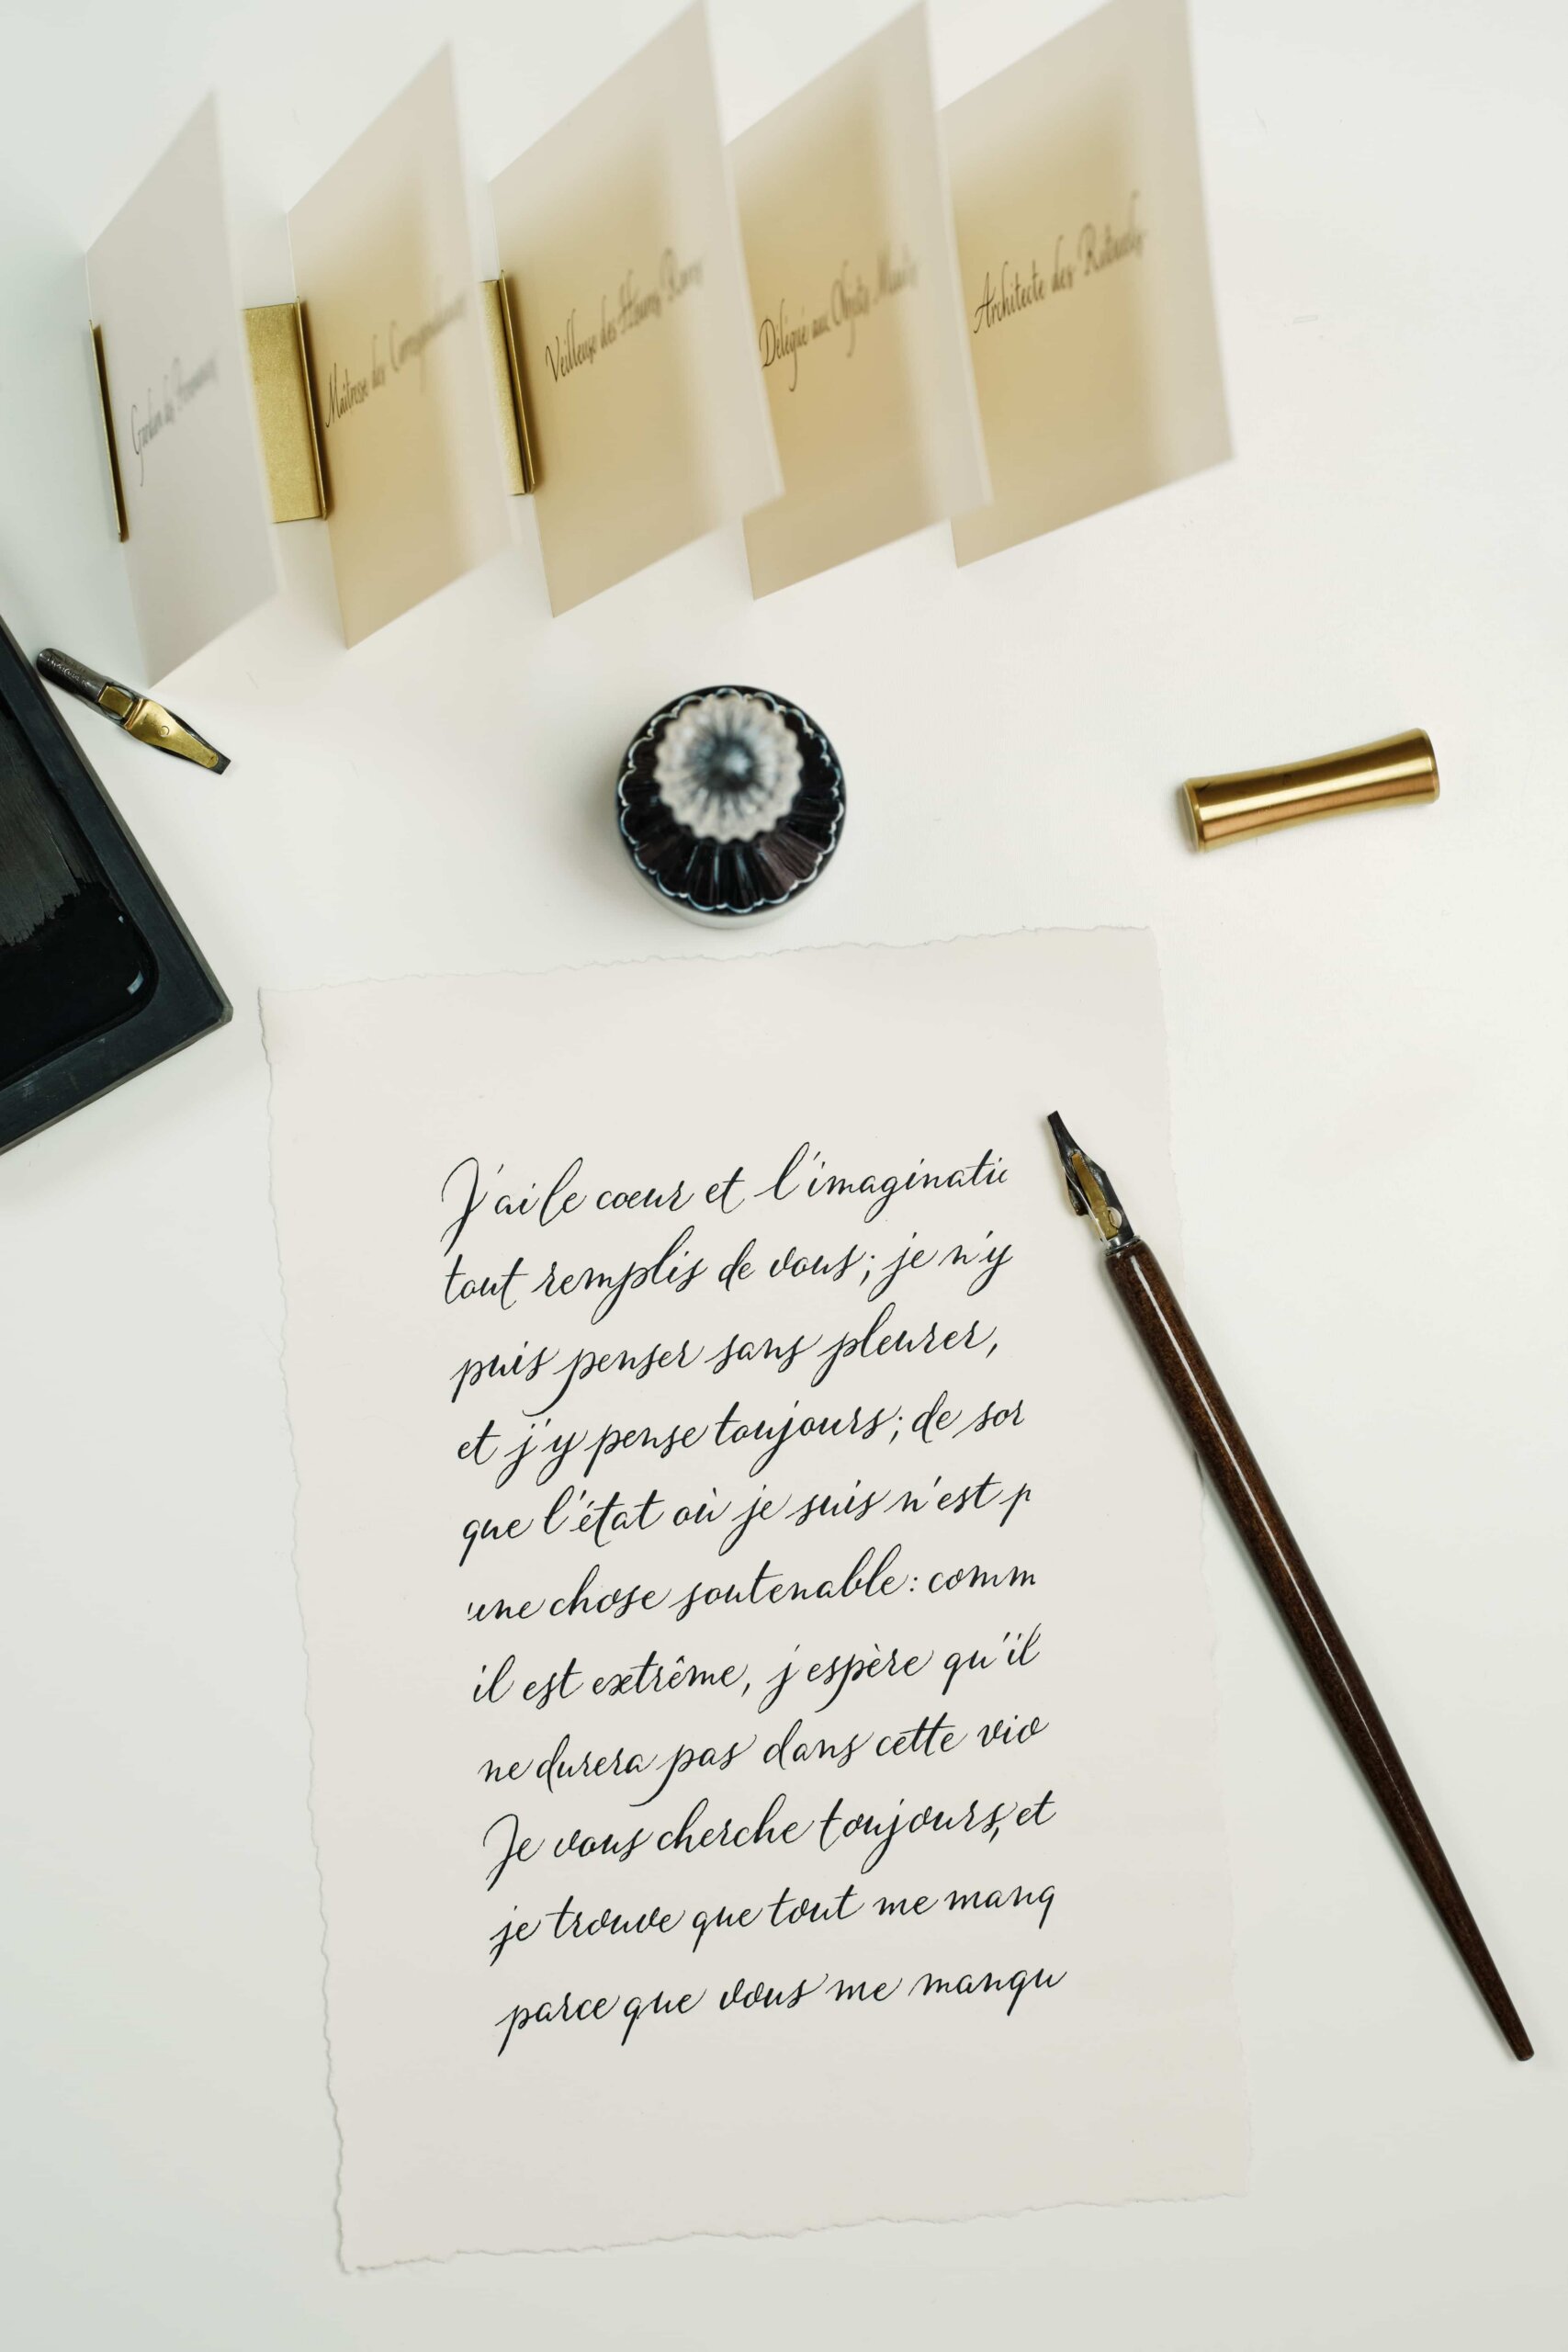 Maîtresse des Correspondances
Veilleuse des Heures Rares
Délégué aux Objets Muets
Architecte des Retards
J'ai le cœur et l'imaginatic
tout remplis de vous; je n'y
puis penser sans pleurer,
et j'y pense toujours; de sor
que l'état où je suis n'est p
une chose soutenable: comm
il est extrême, j'espère qu'il
ne durera pas dans cette vio
Je vous cherche toujours, et
je trouve que tout me manq
parce que vous me manqu